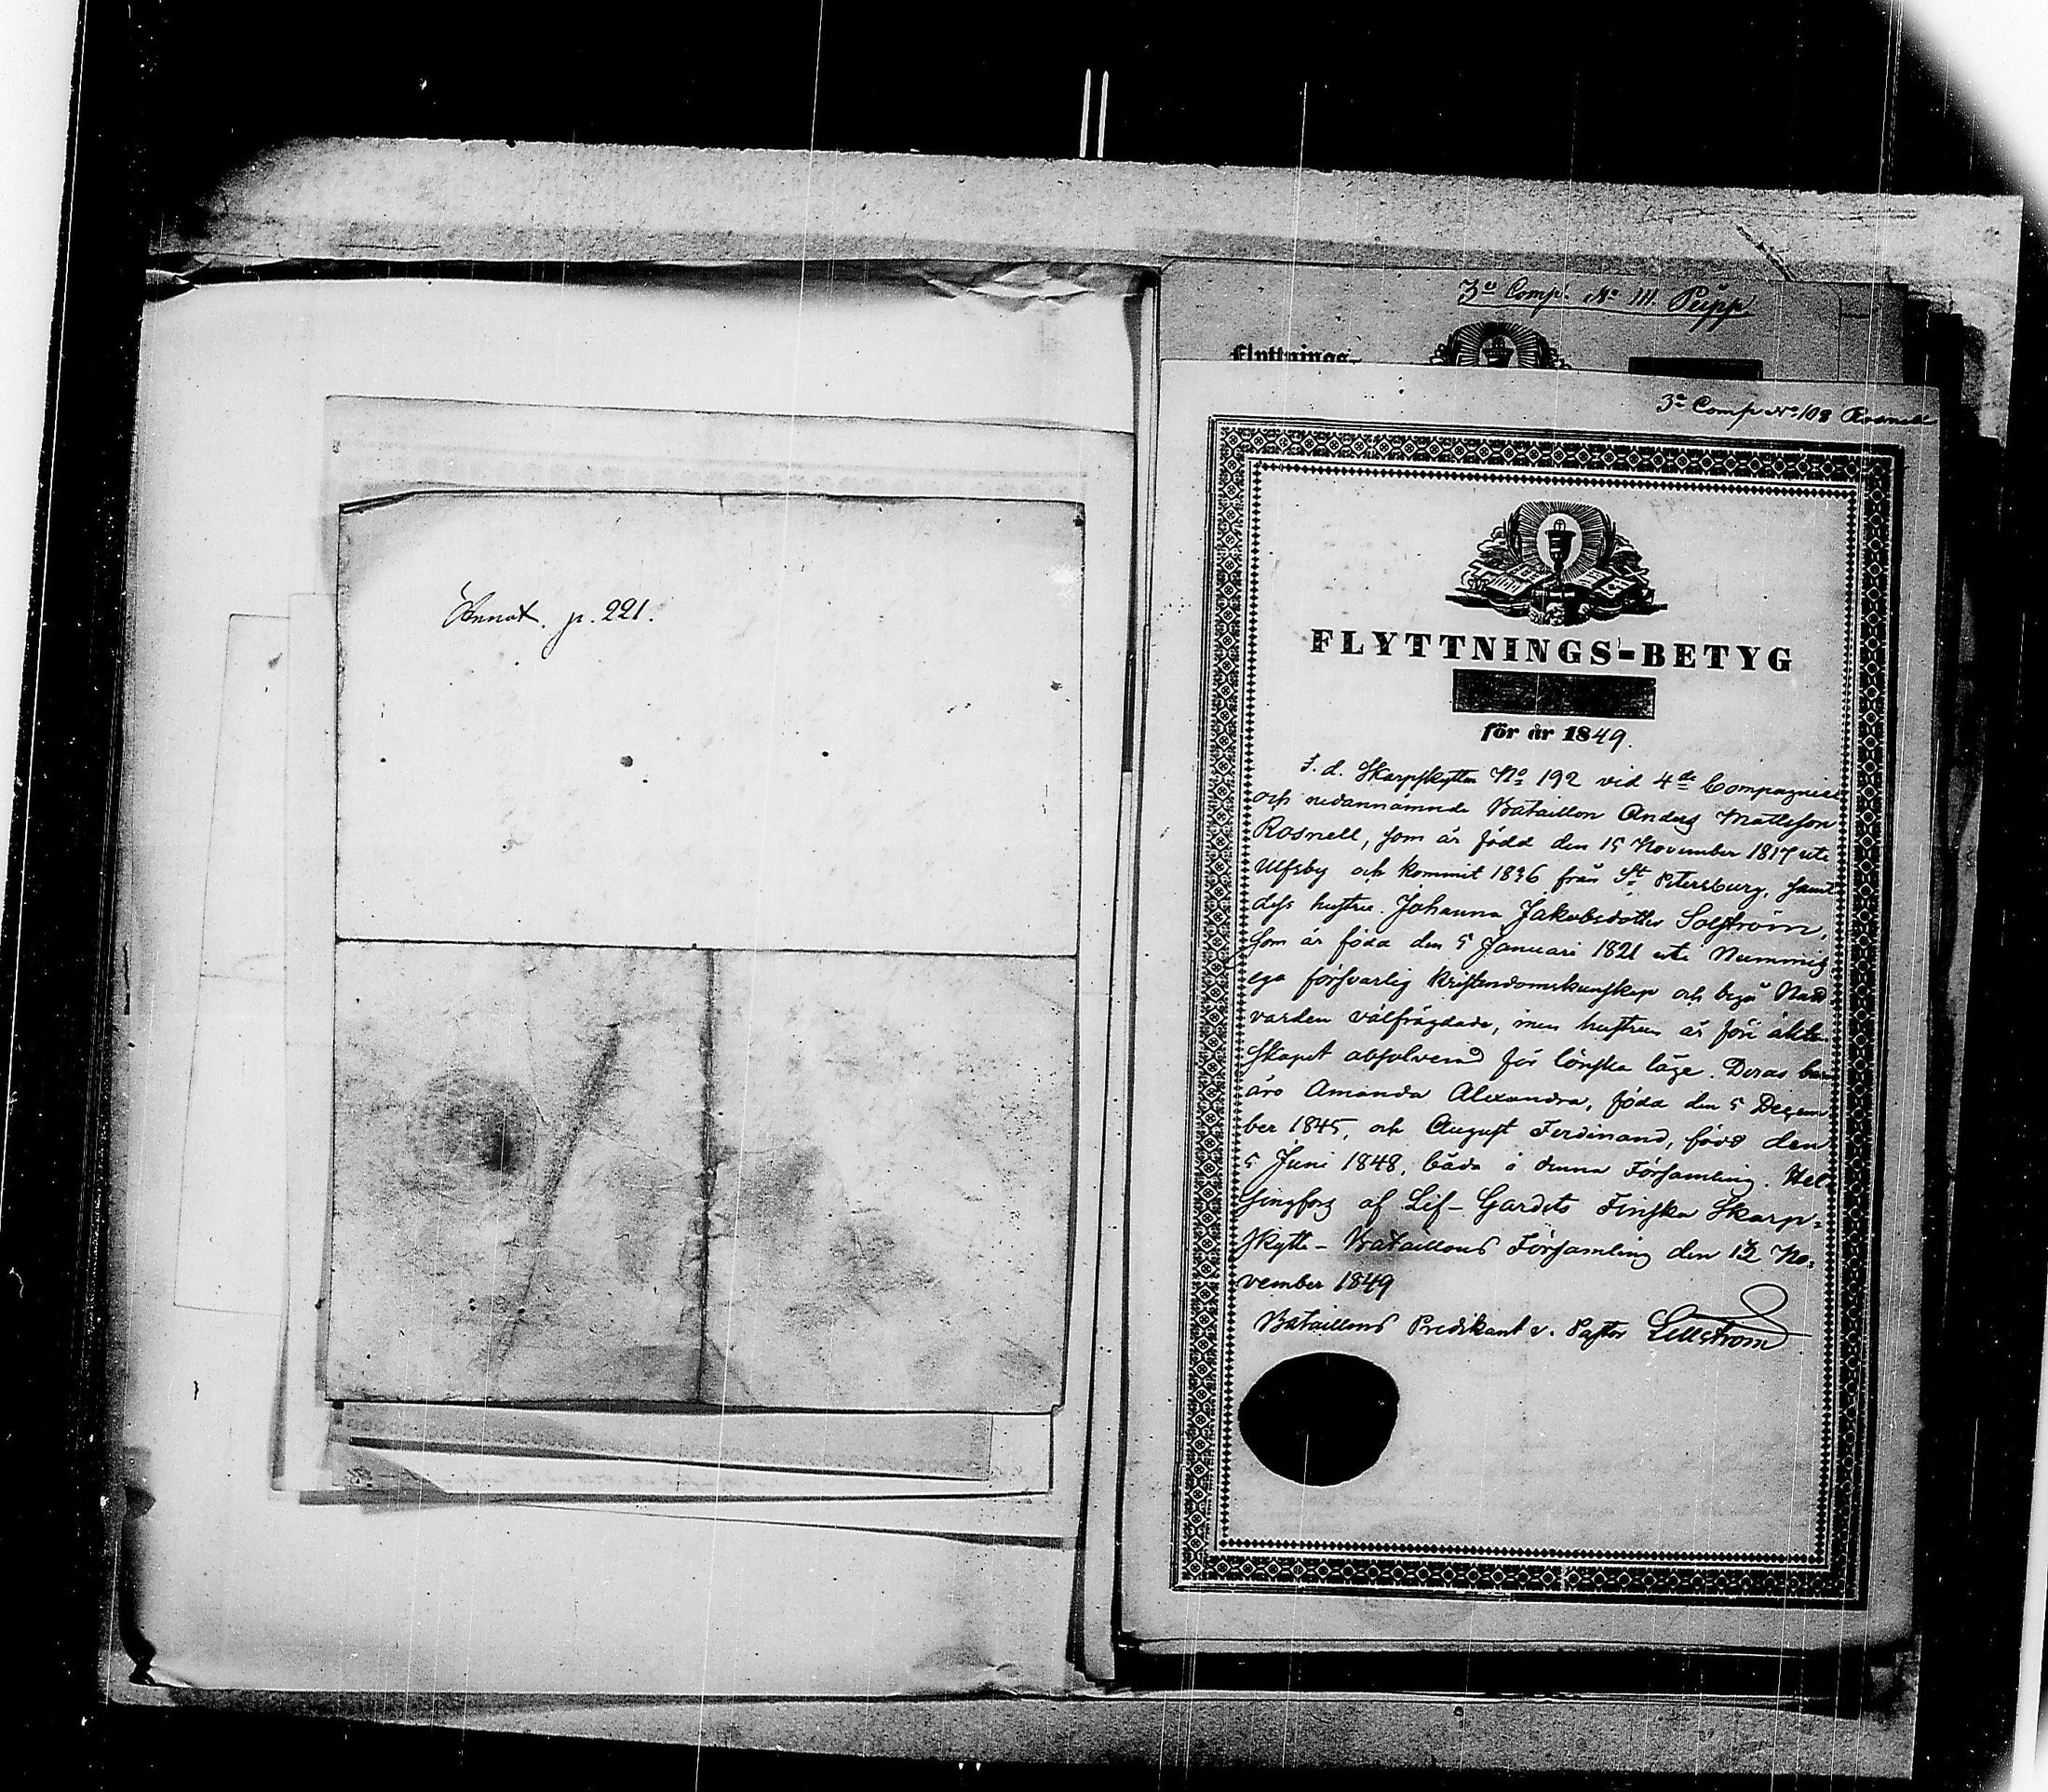 Annot. p. 221.
3e Comp. No 111. Pipp
Flyttnings-
3e Comp No 108 Rosnell
FLYTTNINGS-BETYG
för år 1849.
F. d. Skarpskytten No 192 vid 4de Compagniet
och nedannämnde Bataillon Anders Mattsson
Rosnell, som är född den 15 November 1817 uti
Ulfsby och kommit 1836 från St Petersburg, samt
dess hustru Johanna Jakobsdotter Solström,
som är född den 5 Januari 1821 uti Nummis
ega försvarlig kristendomskunskap och begå Natt-
varden välfrägdade, men hustrun är före äkten-
skapet absolverad för lönska läge. Deras barn
äro Amanda Alexandra, född den 5 Decem
ber 1845, och August Ferdinand, född den
5 Juni 1848, båda i denna Församling. Hel
singfors af Lif-Gardets Finska Skarp-
skytte-Bataillons Församling den 12 No-
vember 1849
Bataillons Predikant v. Pastor Lillström